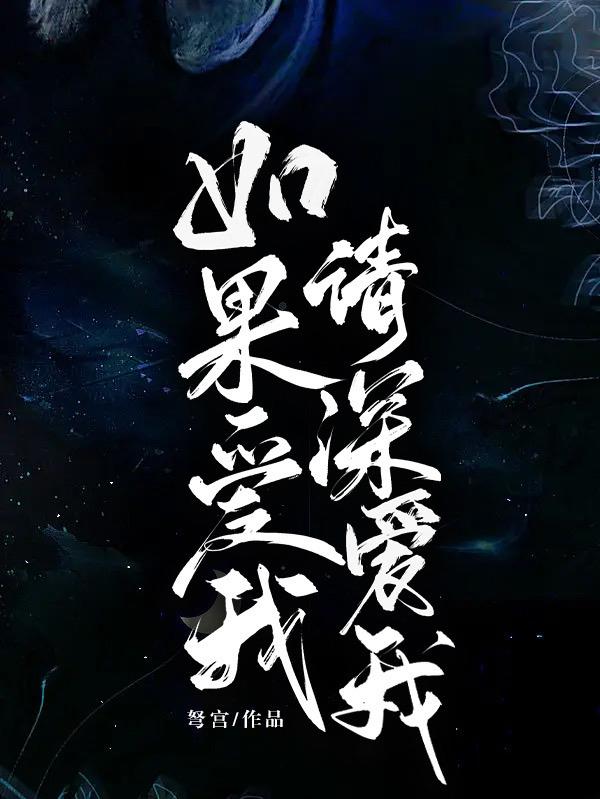 如果爱我
请深爱我
弩宫/作品